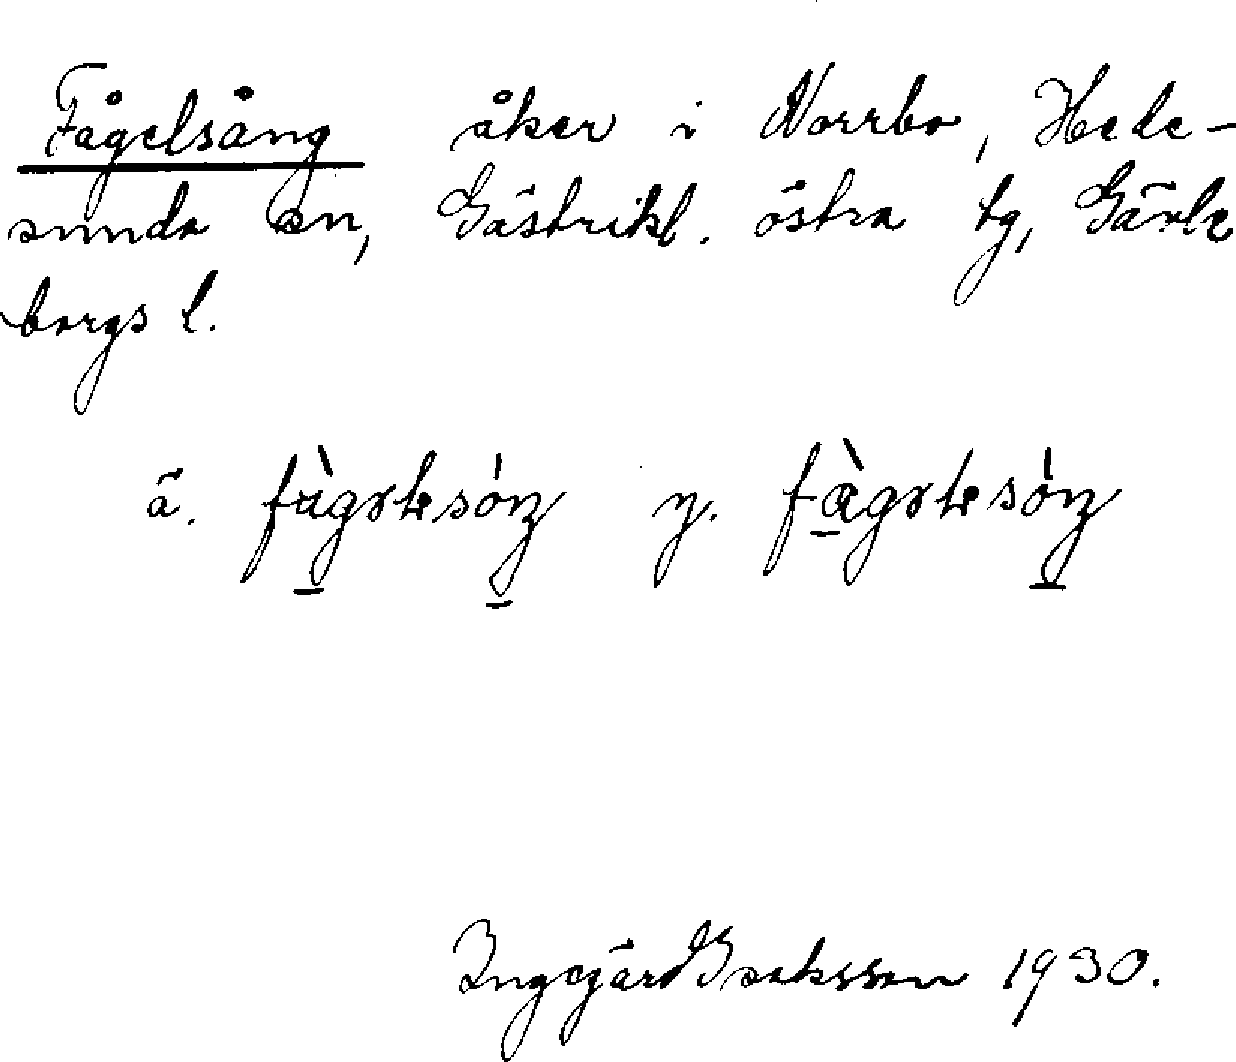 Fågelsång åker i Norrbo, Hede-
sunda sn, Gästrikl. östra tg, Gävle
borgs l.
ä. y.
Ingegärd Isaksson 1930.